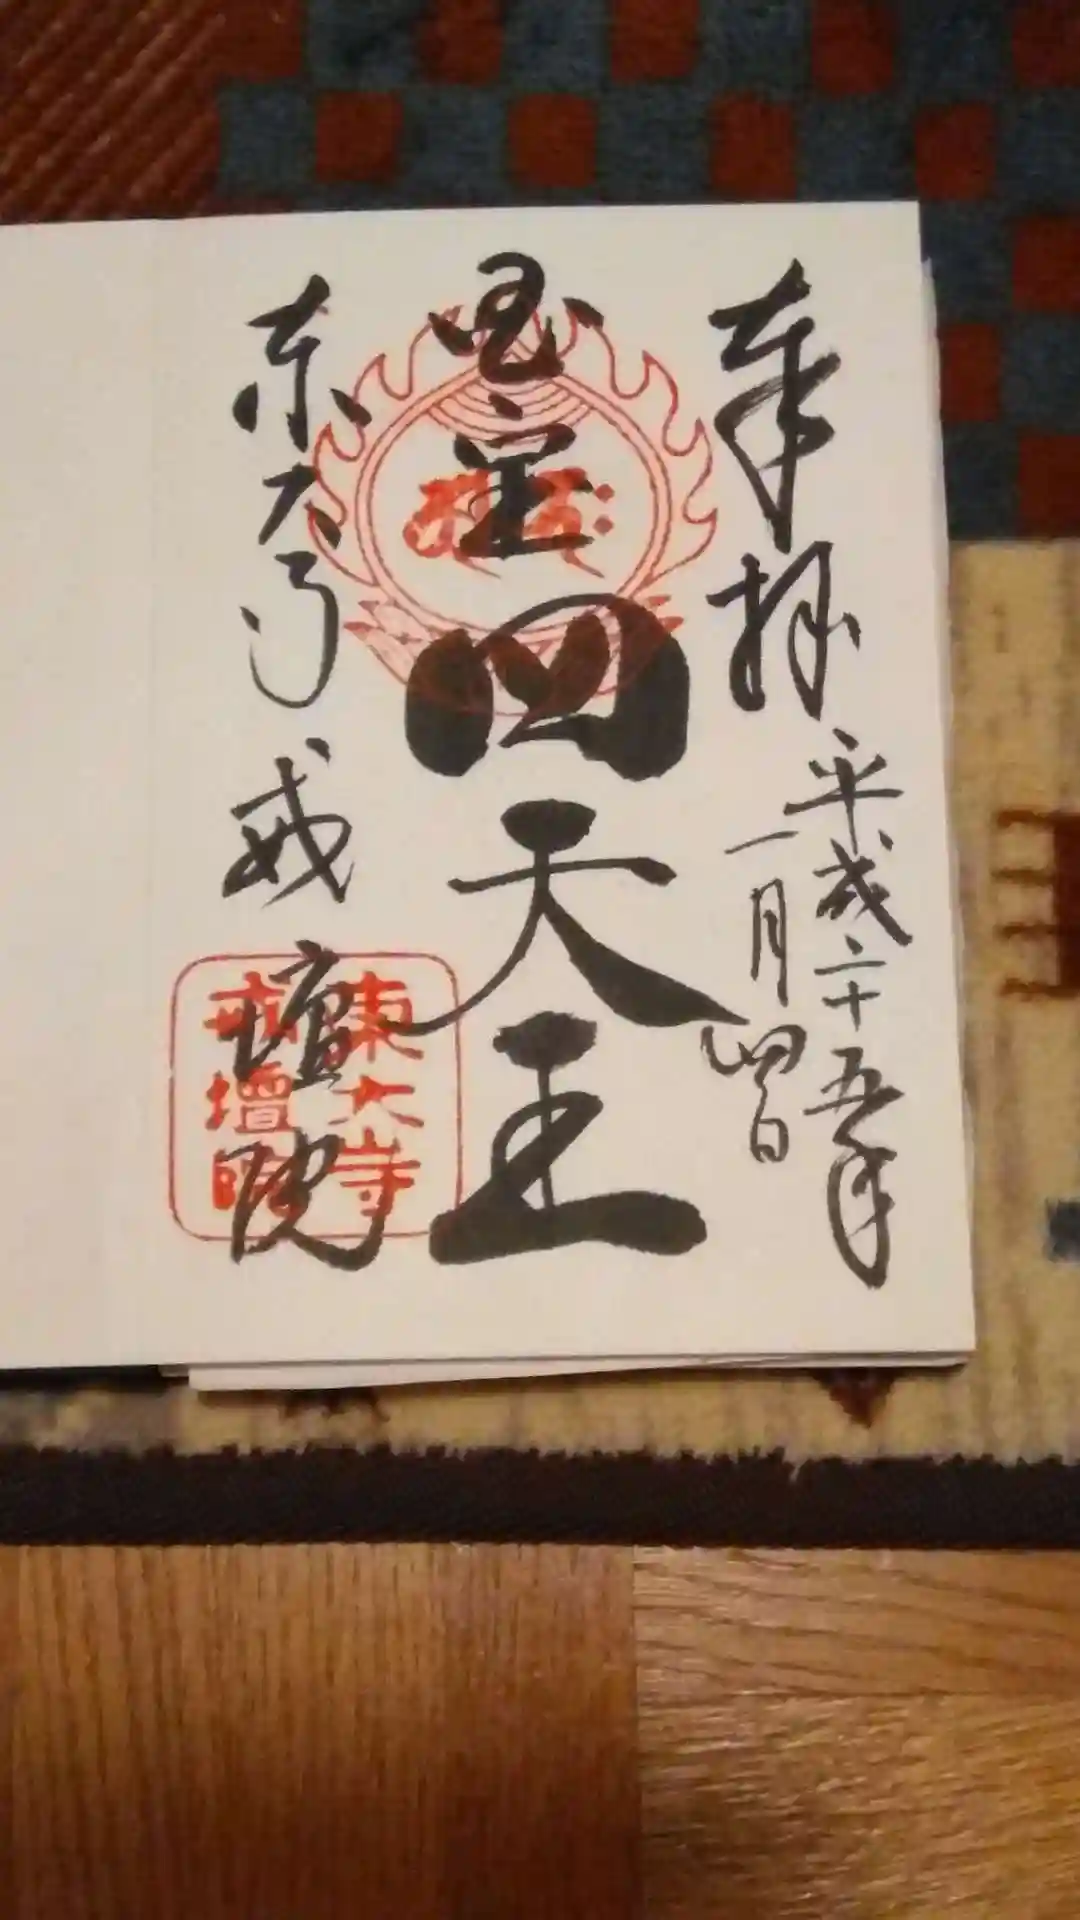 奉拝
平成二十五年
一月四日
国宝
四天王
東大寺
戒壇院
東大寺
戒壇院